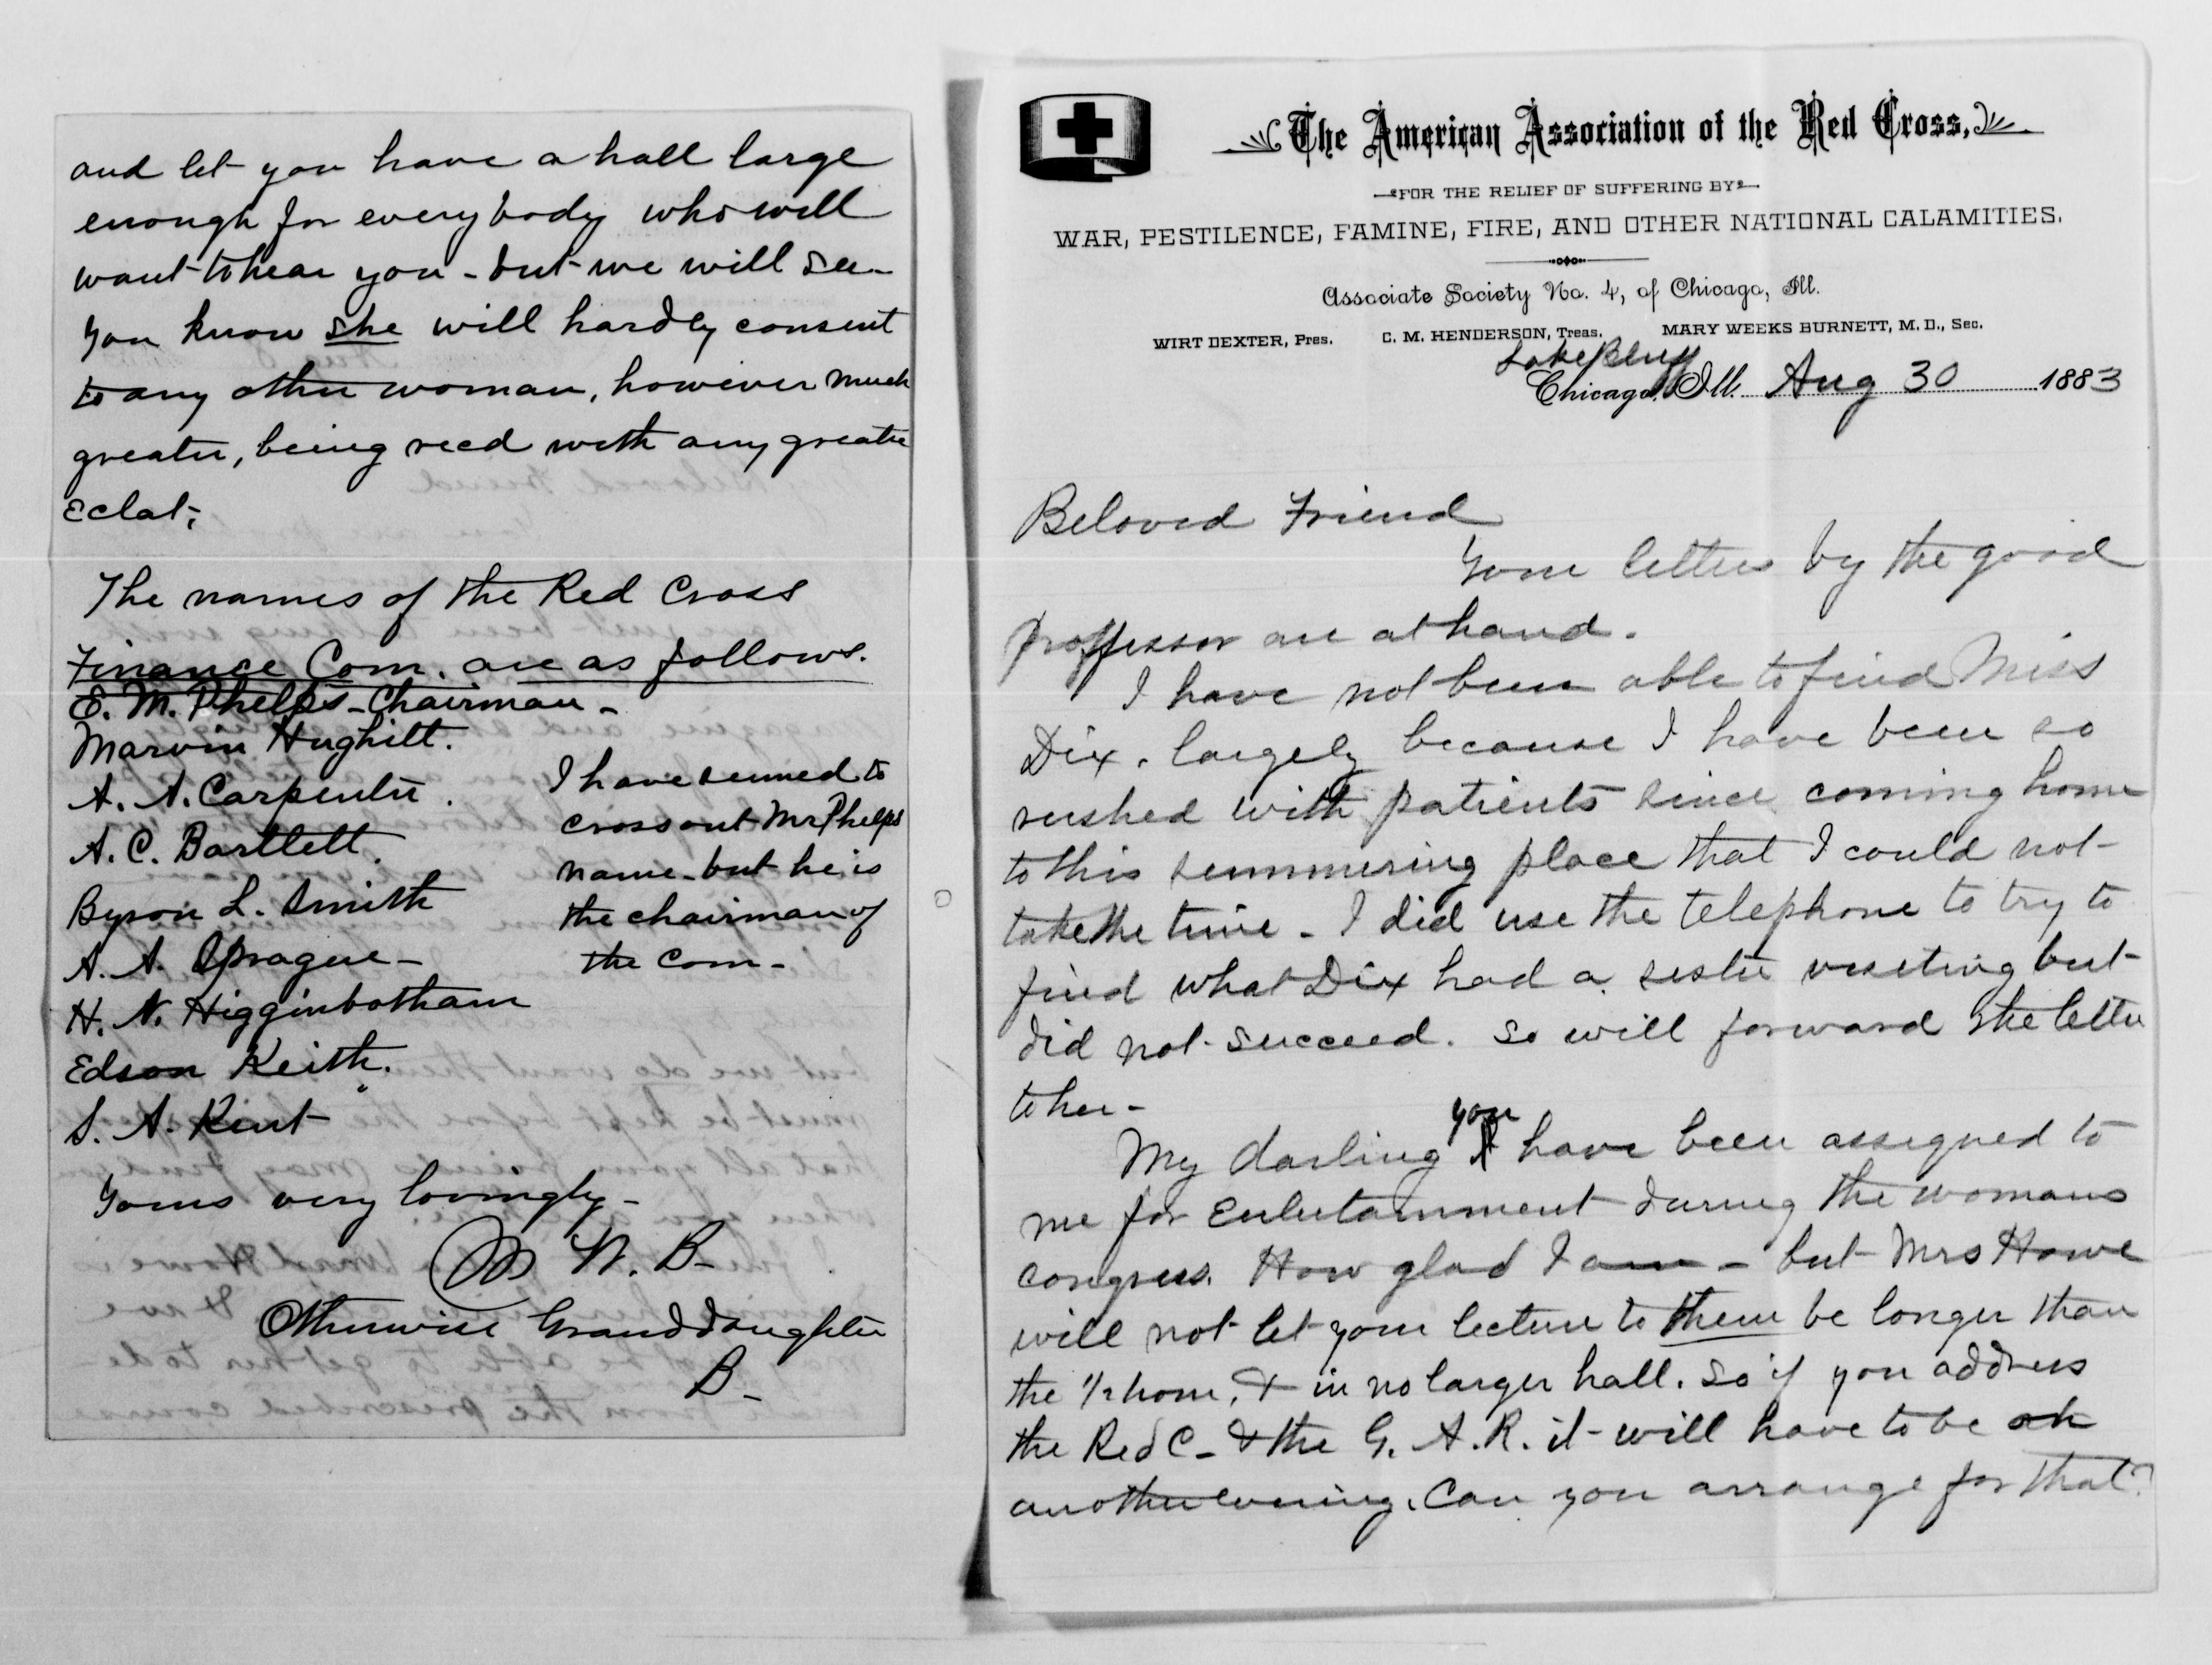 and let you have a hall large
enough for everybody who will
want to hear you - but we will see -
You know she will hardly consent
to any other woman, however much
greater, being recd with any greater
Eclat;
The names of the Red Cross
Finance Com. are as follows.
E. M. Phelps - Chairman -
Marvin Hughitt.
A. A. Carpenter.
A. C. Bartlett.
Byron L. Smith
A. A. Sprague -
H. N. Higginbotham
Edson Keith.
S. A. Kent
I have seemed to
cross out Mr Phelps
name - but he is
the chairman of
the Com -
Yours very lovingly -
M W. B -
Otherwise Granddaughter
B -
The American Association of the Red Cross,
FOR THE RELIEF OF SUFFERING BY
WAR, PESTILENCE, FAMINE, FIRE, AND OTHER NATIONAL CALAMITIES.
Associate Society No. 4, of Chicago, Ill.
WIRT DEXTER, Pres. C. M. HENDERSON, Treas. MARY WEEKS BURNETT, M. D., Sec.
Lake Bluff
Chicago, Ill. Aug 30 1883
Beloved Friend
Your letters by the good
proffessor are at hand.
I have not been able to find Miss
Dix. largely because I have been so
rushed with patients since coming home
to this summering place that I could not -
take the time - I did use the telephone to try to
find what Dix had a sister visiting but -
did not succeed. So will forward the letter
to her -
you
My darling I have been assigned to
me for entertainment during the womans
congress. How glad I am - but Mrs Howe
will not let your lecture to them be longer than
the 1/2 hour, & in no larger hall. So if you address
the Red C - & the G. A. R. it - will have to be oh
another evening. Can you arrange for that?